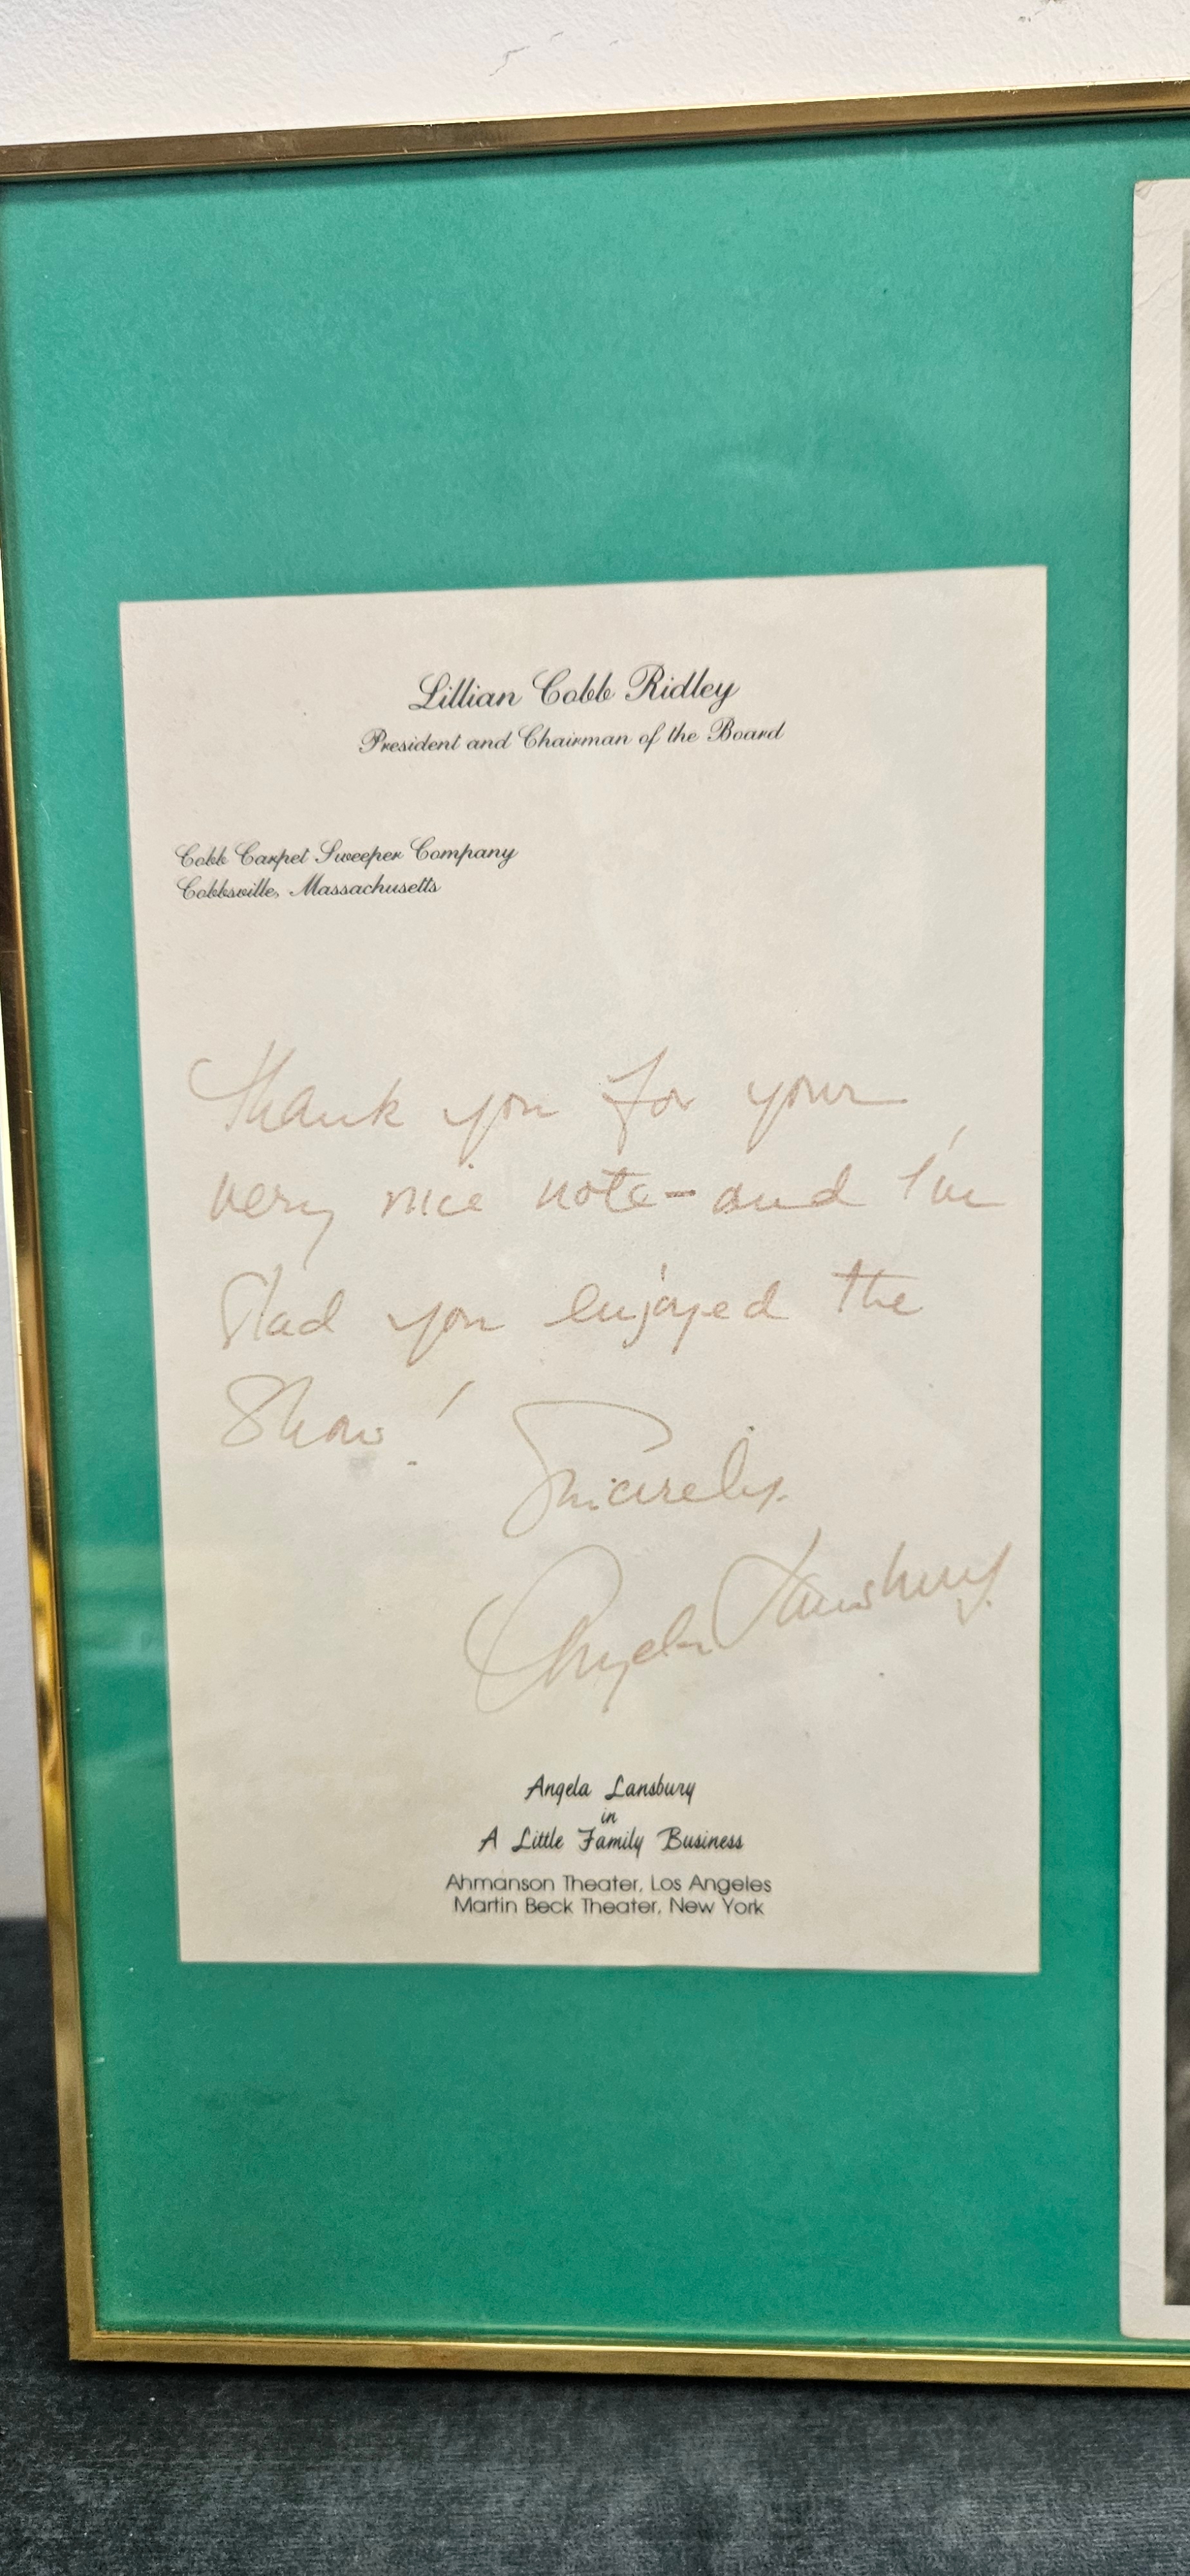 Lillian Cobb Ridley
President and Chairman of the Board
Cobb Carpet Sweeper Company
Cobbsville, Massachusetts
Thank you for your
very nice note - and I'm
Glad you enjoyed the
Show!
Sincerely.
Angela Lansbury.
Angela Lansbury
in
A Little Family Business
Ahmanson Theater, Los Angeles
Martin Beck Theater, New York